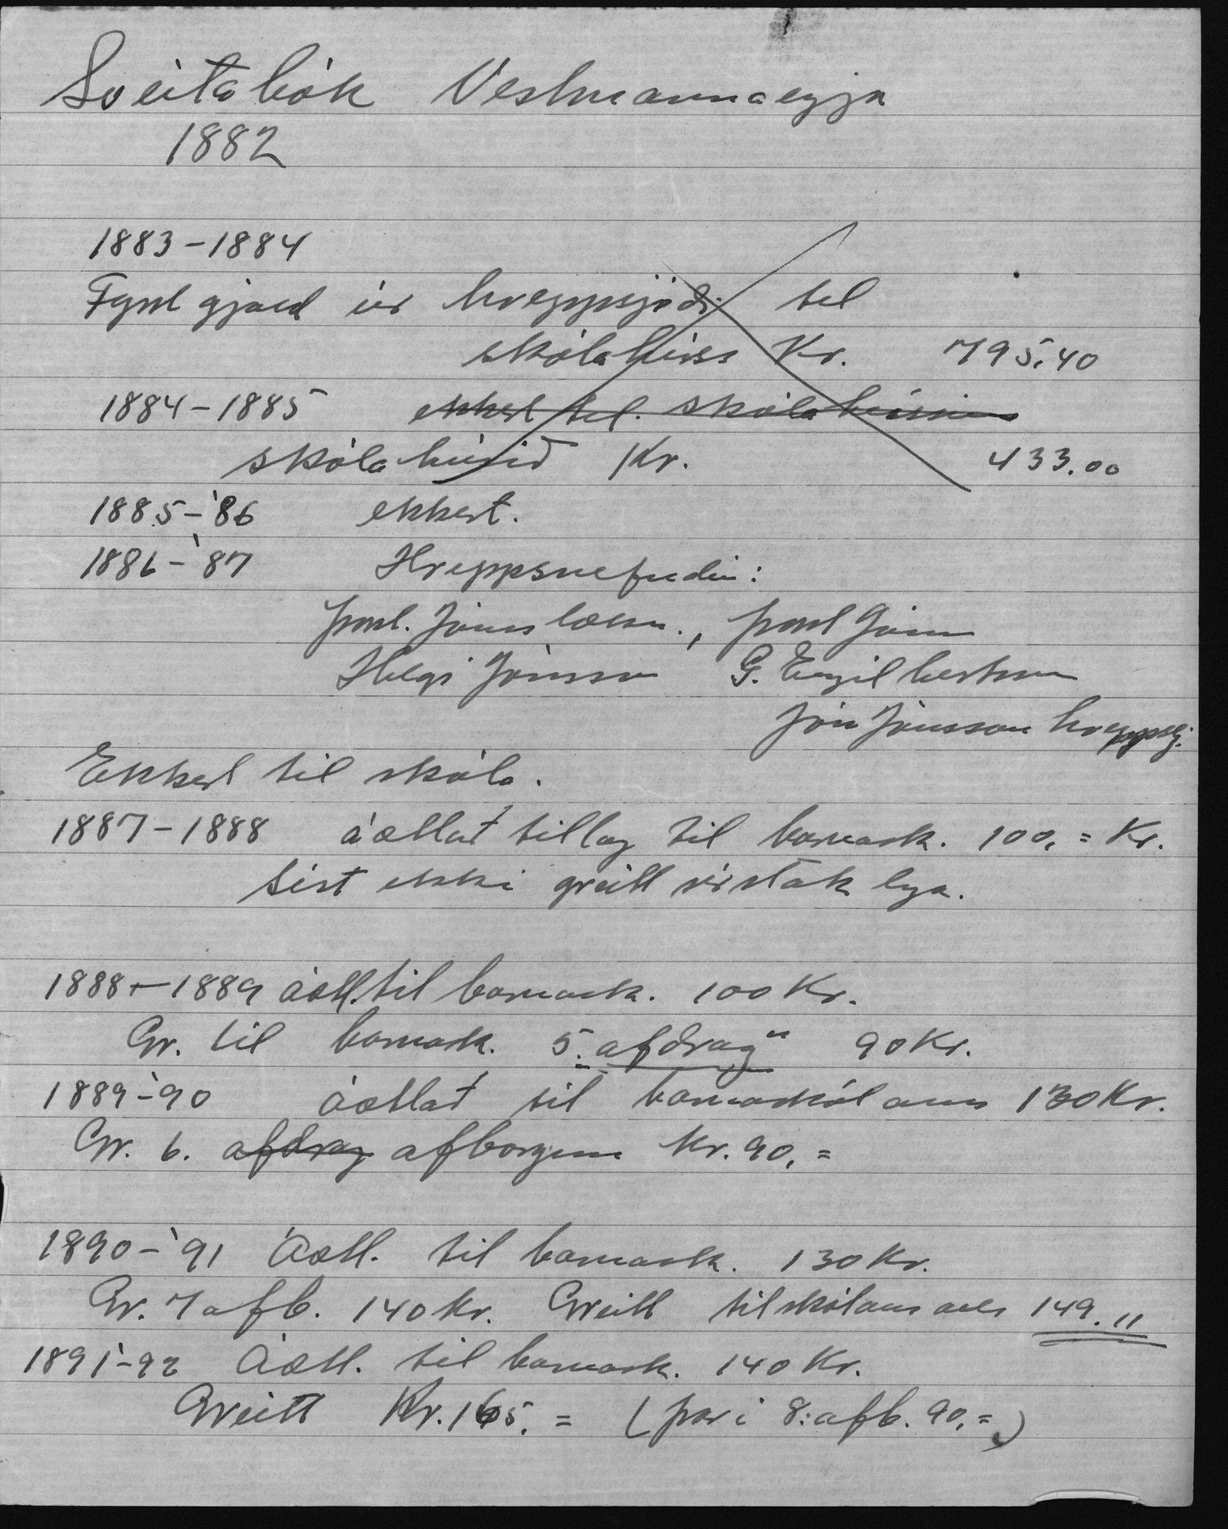 Sveitabók Vestmannaeyja
1882
1883-1884
Fyrst gjald úr hreppsjóði til
skólahúss Kr. 795.40
1884-1885 ekkert til skólahússins
skólahúsið Kr. 433.00
1885-'86 ekkert.
1886-'87 Hreppsnefndin:
Þorst. Jónss læknr., Þorst Jónss
Helgi Jónsson G. Engilbertsson
Jón Jónsson hreppstj.
Ekkert til skóla.
1887-1888 áætlað tillag til barnask. 100,= Kr.
Sést ekki greitt
1888-1889 áætl. til barnask. 100 Kr.
Gr. til barnask. 5. afdrag" 90 Kr.
1889-'90 áætlað til barnaskólans 130 Kr.
Gr. 6. afdrag afborgun Kr. 90,=
1890-'91 Áætl. til barnask. 130 Kr.
Gr. 7 afb. 140 Kr. Greitt til skólans alls 149.,,
1891-92 Áætl. til barnask. 140 Kr.
Greitt Kr. 165,= (þar í 8: afb. 90,=)